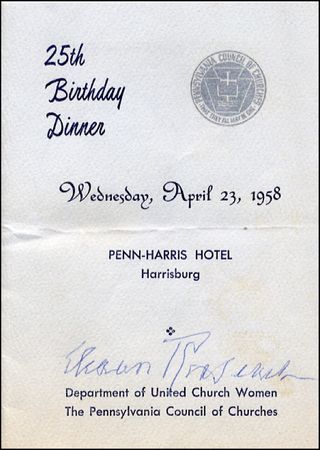 25th
Birthday
Dinner
PENNSYLVANIA COUNCIL OF CHURCHES
THAT THEY ALL MAY BE ONE
Wednesday, April 23, 1958
PENN-HARRIS HOTEL
Harrisburg
Eleanor Roosevelt
Department of United Church Women
The Pennsylvania Council of Churches